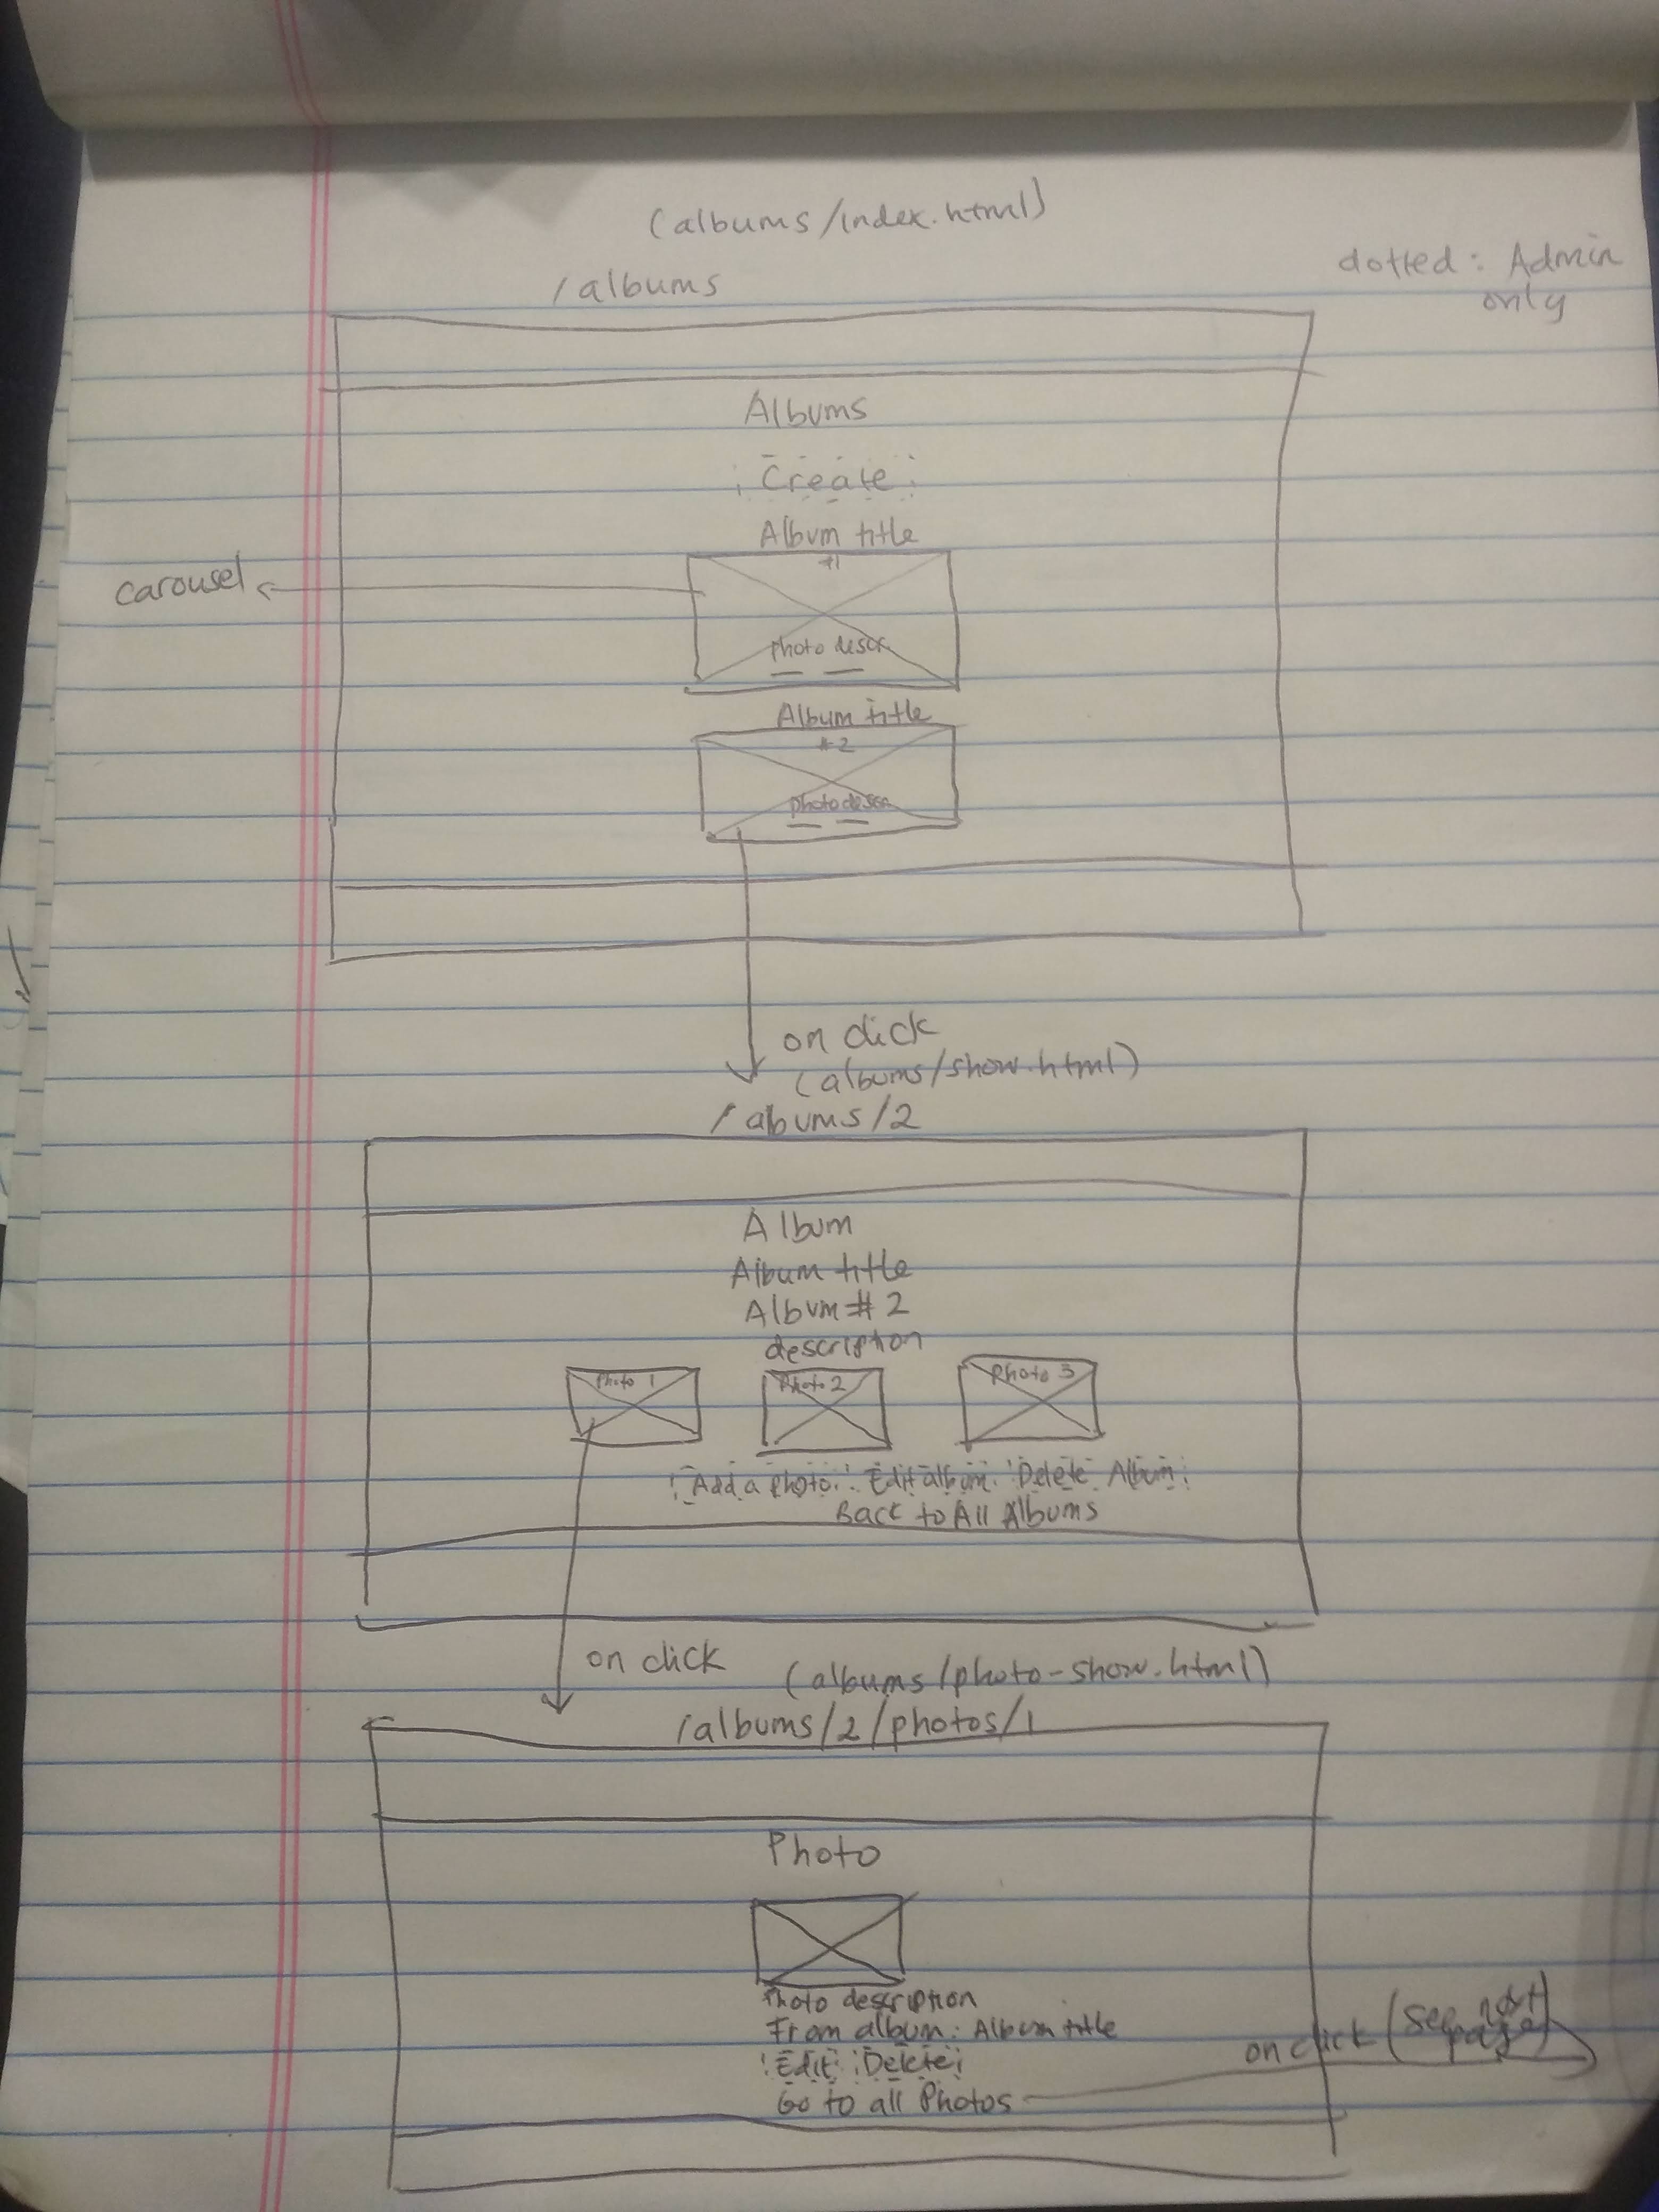 (albums/index.html)
/albums
dotted: Admin
only
Albums
Create
Album title
#1
carousel
Photo descr.
Album title
#2
photo descr.
on click
(albums/show.html)
/albums/2
Album
Album title
Album # 2
description
Photo 1
Photo 2
Photo 3
Add a Photo Edit album Delete Album
Back to All Albums
on click
(albums/photo-show.html)
/albums/2/photos/1
Photo
Photo description
From album: Album title
Edit Delete
on click (see next
page)
Go to all Photos